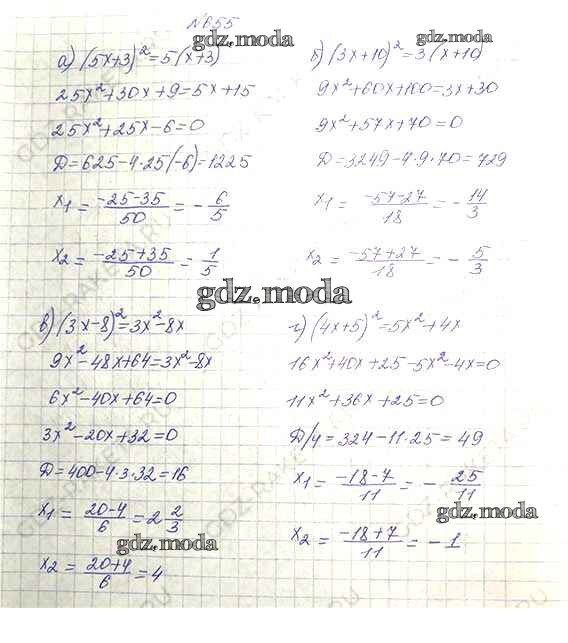 №655
а) (5x+3)²=5(x+3)
25x²+30x+9=5x+15
25x²+25x-6=0
D=625-4·25(-6)=1225
x₁ = (-25-35)/50 = -6/5
x₂ = (-25+35)/50 = 1/5
б) (3x+10)²=3(x+10)
9x²+60x+100=3x+30
9x²+57x+70=0
D=3249-4·9·70=729
x₁ = (-57-27)/18 = -14/3
x₂ = (-57+27)/18 = -5/3
gdz.moda
gdz.moda
gdz.moda
в) (3x-8)²=3x²-8x
9x²-48x+64=3x²-8x
6x²-40x+64=0
3x²-20x+32=0
D=400-4·3·32=16
x₁ = (20-4)/6 = 2 2/3
x₂ = (20+4)/6 = 4
г) (4x+5)²=5x²+4x
16x²+40x+25-5x²-4x=0
11x²+36x+25=0
D/4=324-11·25=49
x₁ = (-18-7)/11 = -25/11
x₂ = (-18+7)/11 = -1
gdz.moda
gdz.moda
gdz.moda